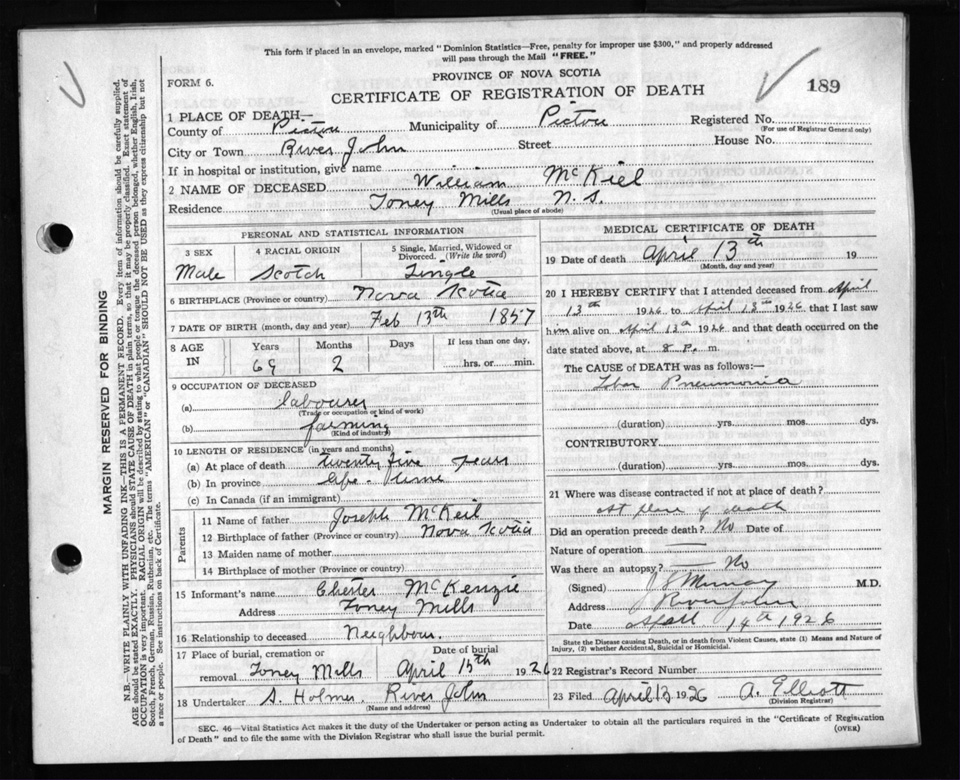 This form if placed in an envelope, marked "Dominion Statistics—Free, penalty for improper use $300," and properly addressed
will pass through the Mail "FREE."
PROVINCE OF NOVA SCOTIA
FORM 6.
CERTIFICATE OF REGISTRATION OF DEATH
189
1 PLACE OF DEATH—
County of Pictou Municipality of Pictou Registered No.
(For use of Registrar General only)
City or Town River John Street House No.
If in hospital or institution, give name
2 NAME OF DECEASED William McKiel
Residence Toney Mills N.S.
(Usual place of abode)
PERSONAL AND STATISTICAL INFORMATION
3 SEX 4 RACIAL ORIGIN 5 Single, Married, Widowed or
Divorced. (Write the word)
Male Scotch Single
6 BIRTHPLACE (Province or country) Nova Scotia
7 DATE OF BIRTH (month, day and year) Feb 13th 1857
8 AGE IN Years Months Days If less than one day,
69 2 hrs. or min.
9 OCCUPATION OF DECEASED
(a) labourer
(Trade or occupation or kind of work)
(b) farming
(Kind of industry)
10 LENGTH OF RESIDENCE (in years and months)
(a) At place of death twenty five years
(b) In province life-time
(c) In Canada (if an immigrant)
Parents
11 Name of father Joseph McKeil
12 Birthplace of father (Province or country) Nova Scotia
13 Maiden name of mother
14 Birthplace of mother (Province or country)
15 Informant's name Chester McKenzie
Address Toney Mills
16 Relationship to deceased Neighbour.
17 Place of burial, cremation or Date of burial
removal Toney Mills April 15th 1926
18 Undertaker S. Holmes River John
(Name and address)
MEDICAL CERTIFICATE OF DEATH
19 Date of death April 13th 19
(Month, day and year)
20 I HEREBY CERTIFY that I attended deceased from April
13th 1926 to April 13th 1926 that I last saw
him alive on April 13th 1926 and that death occurred on the
date stated above, at 8 P. m.
The CAUSE of DEATH was as follows:—
Pneumonia
(duration) yrs. mos. dys.
CONTRIBUTORY
(duration) yrs. mos. dys.
21 Where was disease contracted if not at place of death?
At place of death
Did an operation precede death? No Date of
Nature of operation
Was there an autopsy? No
(Signed) Murray M.D.
Address River John
Date 14th 1926
State the Disease causing Death, or in death from Violent Causes, state (1) Means and Nature of
Injury, (2) whether Accidental, Suicidal or Homicidal.
22 Registrar's Record Number
23 Filed April 13 1926 A. Elliott
(Division Registrar)
SEC. 46—Vital Statistics Act makes it the duty of the Undertaker or person acting as Undertaker to obtain all the particulars required in the "Certificate of Registration
of Death" and to file the same with the Division Registrar who shall issue the burial permit.
(OVER)
MARGIN RESERVED FOR BINDING
N.B.—WRITE PLAINLY WITH UNFADING INK—THIS IS A PERMANENT RECORD. Every item of information should be carefully supplied.
AGE should be stated EXACTLY. PHYSICIANS should STATE CAUSE OF DEATH in plain terms, so that it may be properly classified. Exact statement of
OCCUPATION is very important. RACIAL ORIGIN will be described by stating to what people or tongue the deceased person belonged, whether English, Irish,
Scotch, French, German, Russian, Ruthenian, etc. The terms "AMERICAN" or "CANADIAN" SHOULD NOT BE USED as they express citizenship but not
a race or people. See instructions on back of Certificate.